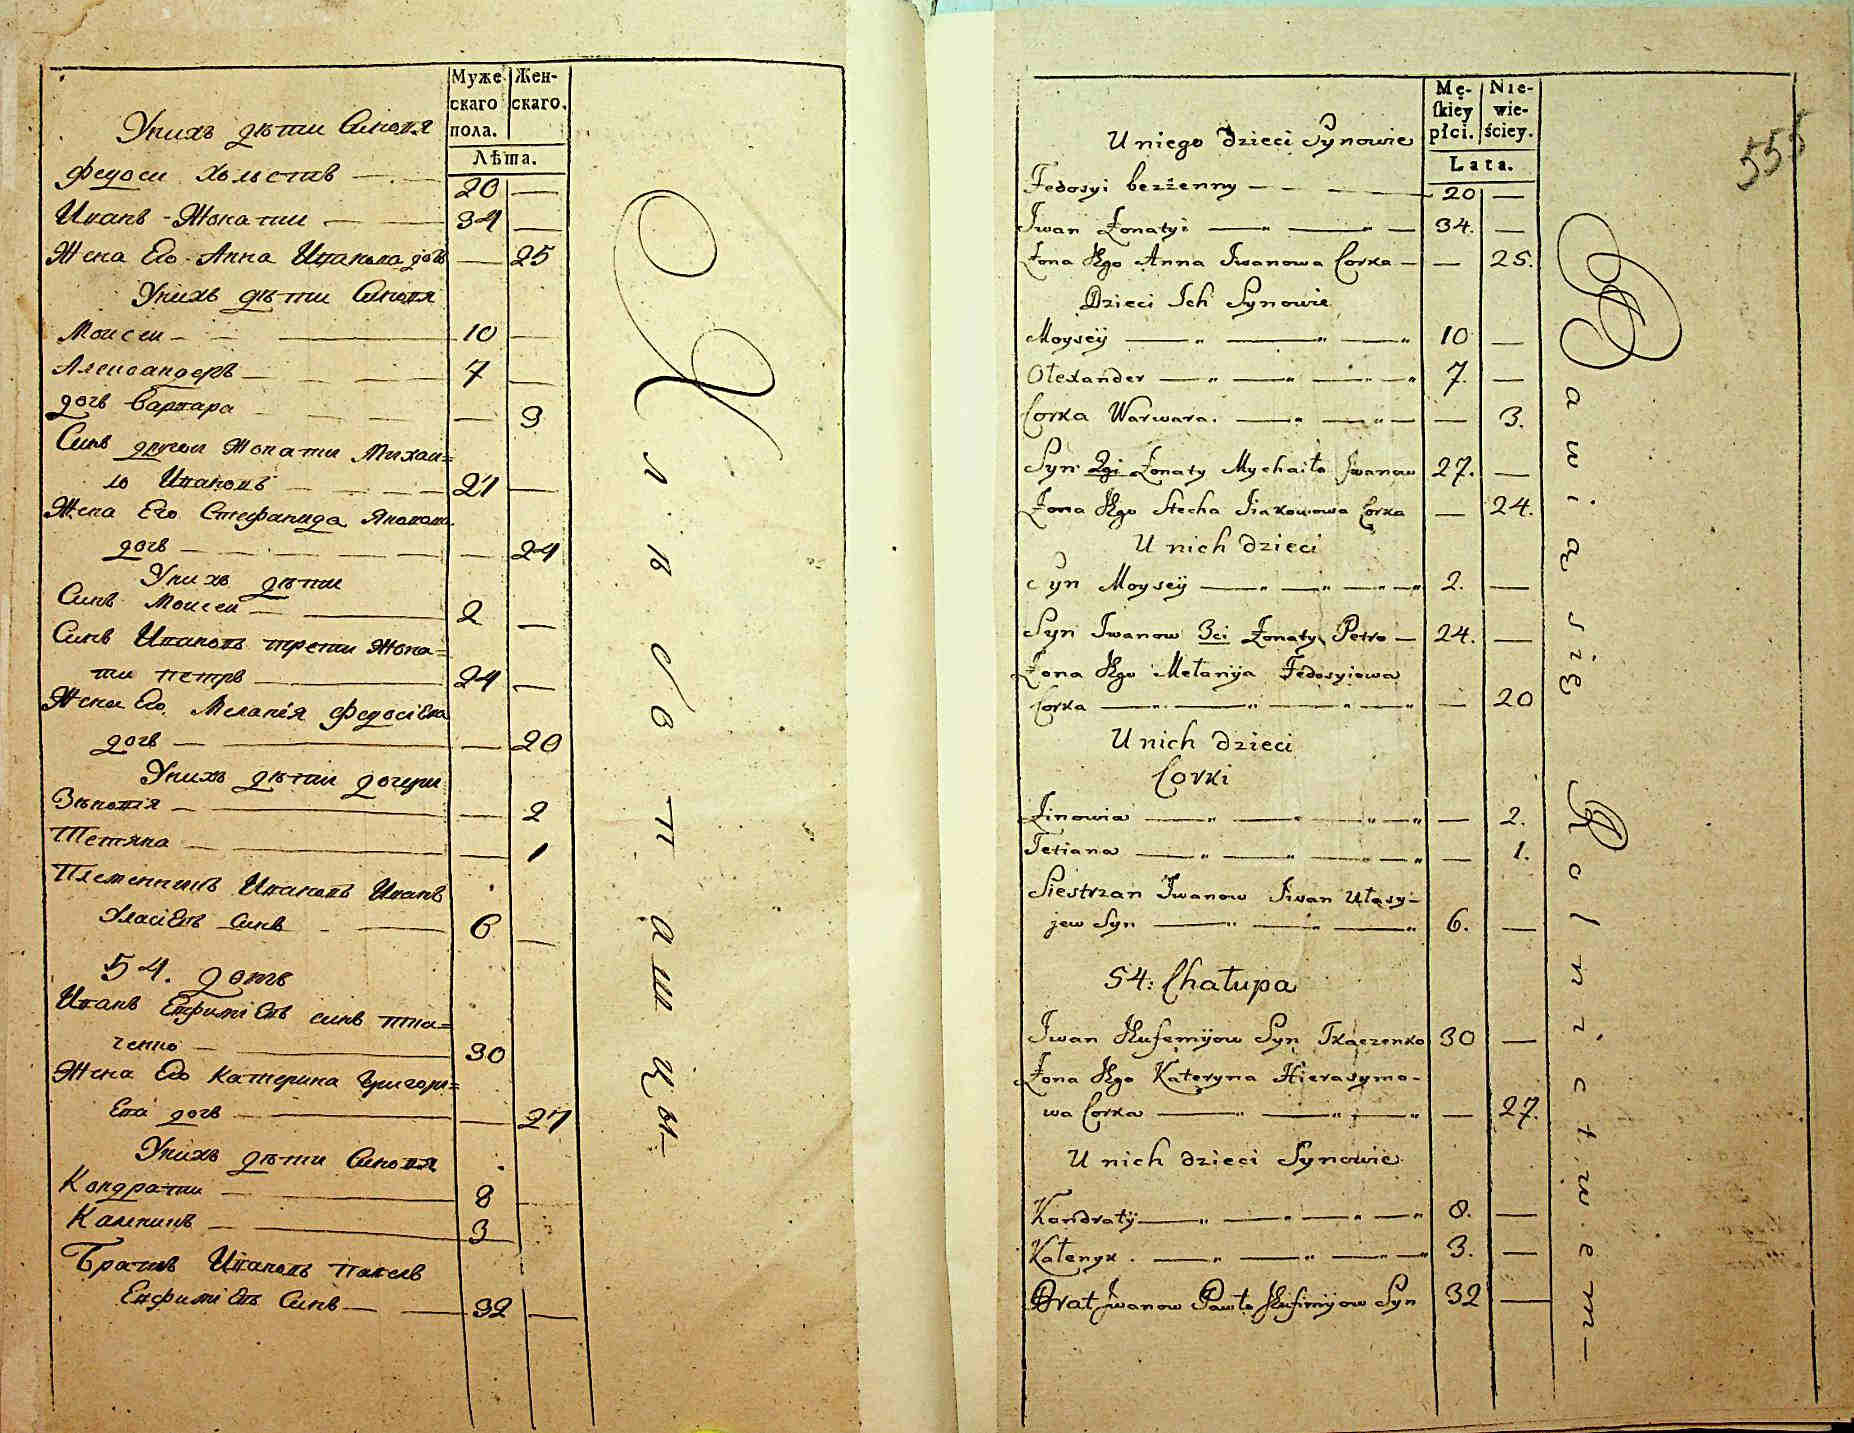 Муже
скаго
пола.
Жен-
скаго.
Лѣта.
Унихъ дѣти Синовя
Федоси Холостъ — 20 —
Иванъ - Жонати — 34 —
Жена Его Анна Иванова дочь — 25
Унихъ дѣти Синовя
Моисеи — 10 —
Александеръ — 7 —
дочь Варвара — 3
Синъ другои Жонати Михаи=
ло Ивановъ — 27 —
Жена Его Стефанида Яковова
дочь — 24
Унихъ дѣти
Синъ Моисеи — 2 —
Синъ Ивановъ трети Жона=
ти петръ — 24 —
Жена Его Меланія Федосіева
дочь — 20
Унихъ дѣти дочери
Зѣновія — 2
Тетяна — 1
Племенникъ Ивановъ Иванъ
Уласіевъ Синъ — 6 —
54. домъ
Иванъ Евфиміевъ синъ тка=
ченко — 30 —
Жена Его Катерина Григори=
ева дочь — 27
Унихъ дѣти Синовя
Кондрати — 8 —
Калникъ — 3 —
Братъ Ивановъ павелъ
Евфиміевъ Синъ — 32 —
Хлѣбопашцы—
555
Mę-
ſkiey
płci.
Nie-
wie-
ściey.
Lata.
U niego dzieci Synowie
Fedosyi bezżenny — 20 —
Iwan Żonatyi — 34. —
Żona Jego Anna Iwanowa Corka — 25.
Dzieci Ich Synowie
Moyseÿ — 10 —
Olexander — 7. —
Corka Warwara. — 3.
Syn 2gi Żonaty Mychaiło Iwanow 27. —
Żona Jego Stecha Iiakowowa Corka — 24.
U nich dzieci
Syn Moyseÿ — 2. —
Syn Iwanow 3ci Żonaty Petro — 24. —
Żona Jego Mełanija Fedosyiowa
Corka — 20
U nich dzieci
Corki
Zinowia — 2.
Tetiana — 1.
Siestrzan Iwanow Iwan Ułasy-
jew Syn — 6. —
54: Chałupa
Iwan Jeufemijow Syn Tkaczenko 30 —
Żona Jego Kateryna Hierasymo-
wa Corka — 27.
U nich dzieci Synowie
Kondratÿ — 8. —
Kałenyk. — 3. —
Brat Iwanow Pawło Jeufimijow Syn 32 —
Bawią się Rolnictwem—